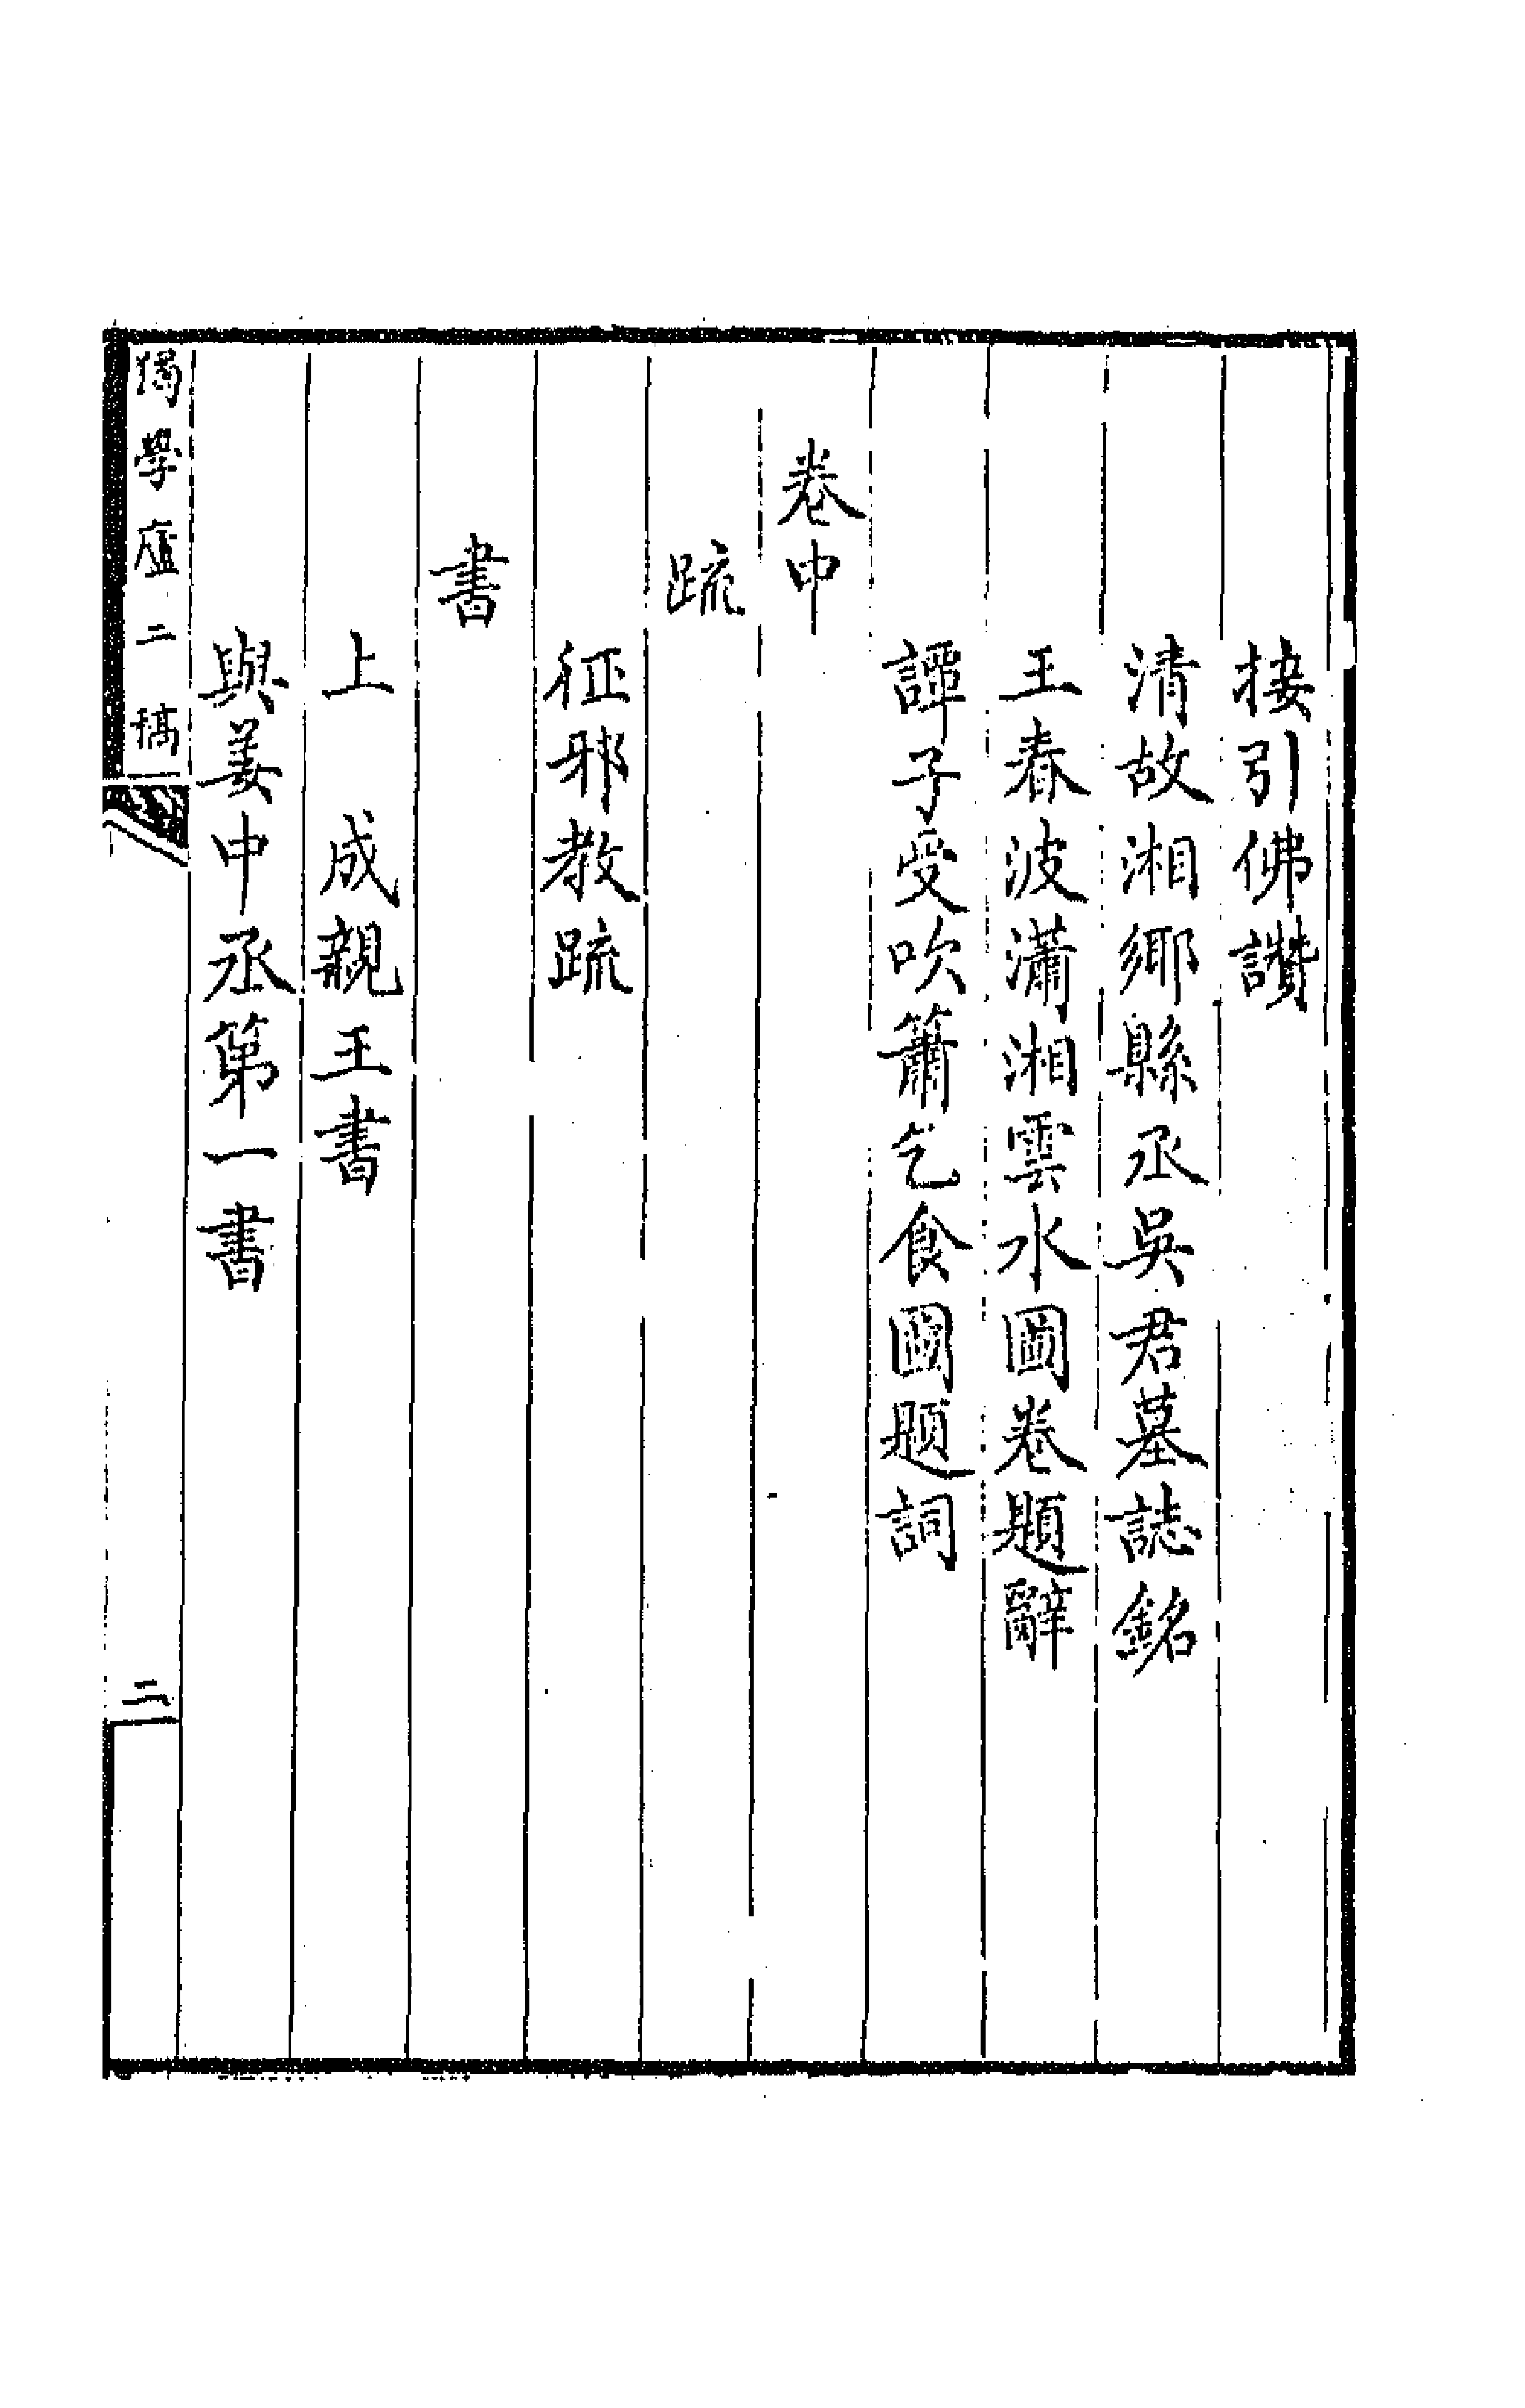 接引佛讚
清故湘鄉縣丞吳君墓誌銘
王春波瀟湘雲水圖卷題辭
譚子受吹簫乞食圖題詞
卷中
疏
征邪教疏
書
上　成親王書
與姜中丞第一書
獨學廬二稿
二